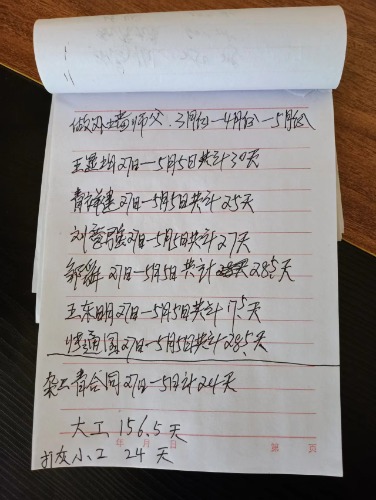 做外墙师父:3月份—4月份—5月份
王 27日—5月5日共计30天
青祥建27日—5月5日共计25天
刘 27日—5月5日共计27天
邹 27日—5月5日共计 28.5天
王东明27日—5月5日共计17.5天
通国27日—5月5日共计28.5天
杂工青合同27日—5日计24天
大工 156.5天
年 月 日 第 页
小工 24天